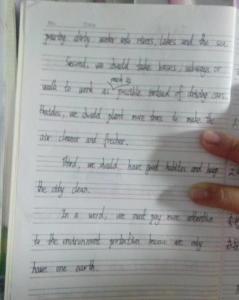 pouring dirty water into rivers, lakes and the sea.
Second, we should take buses, subways or
much as
walk to work as possible instead of driving cars.
Besides, we should plant more trees to make the
air cleaner and fresher.
Third, we should have good habits and keep
the city clean.
In a word, we must pay more attention
to the environment protection because we only
have one earth.